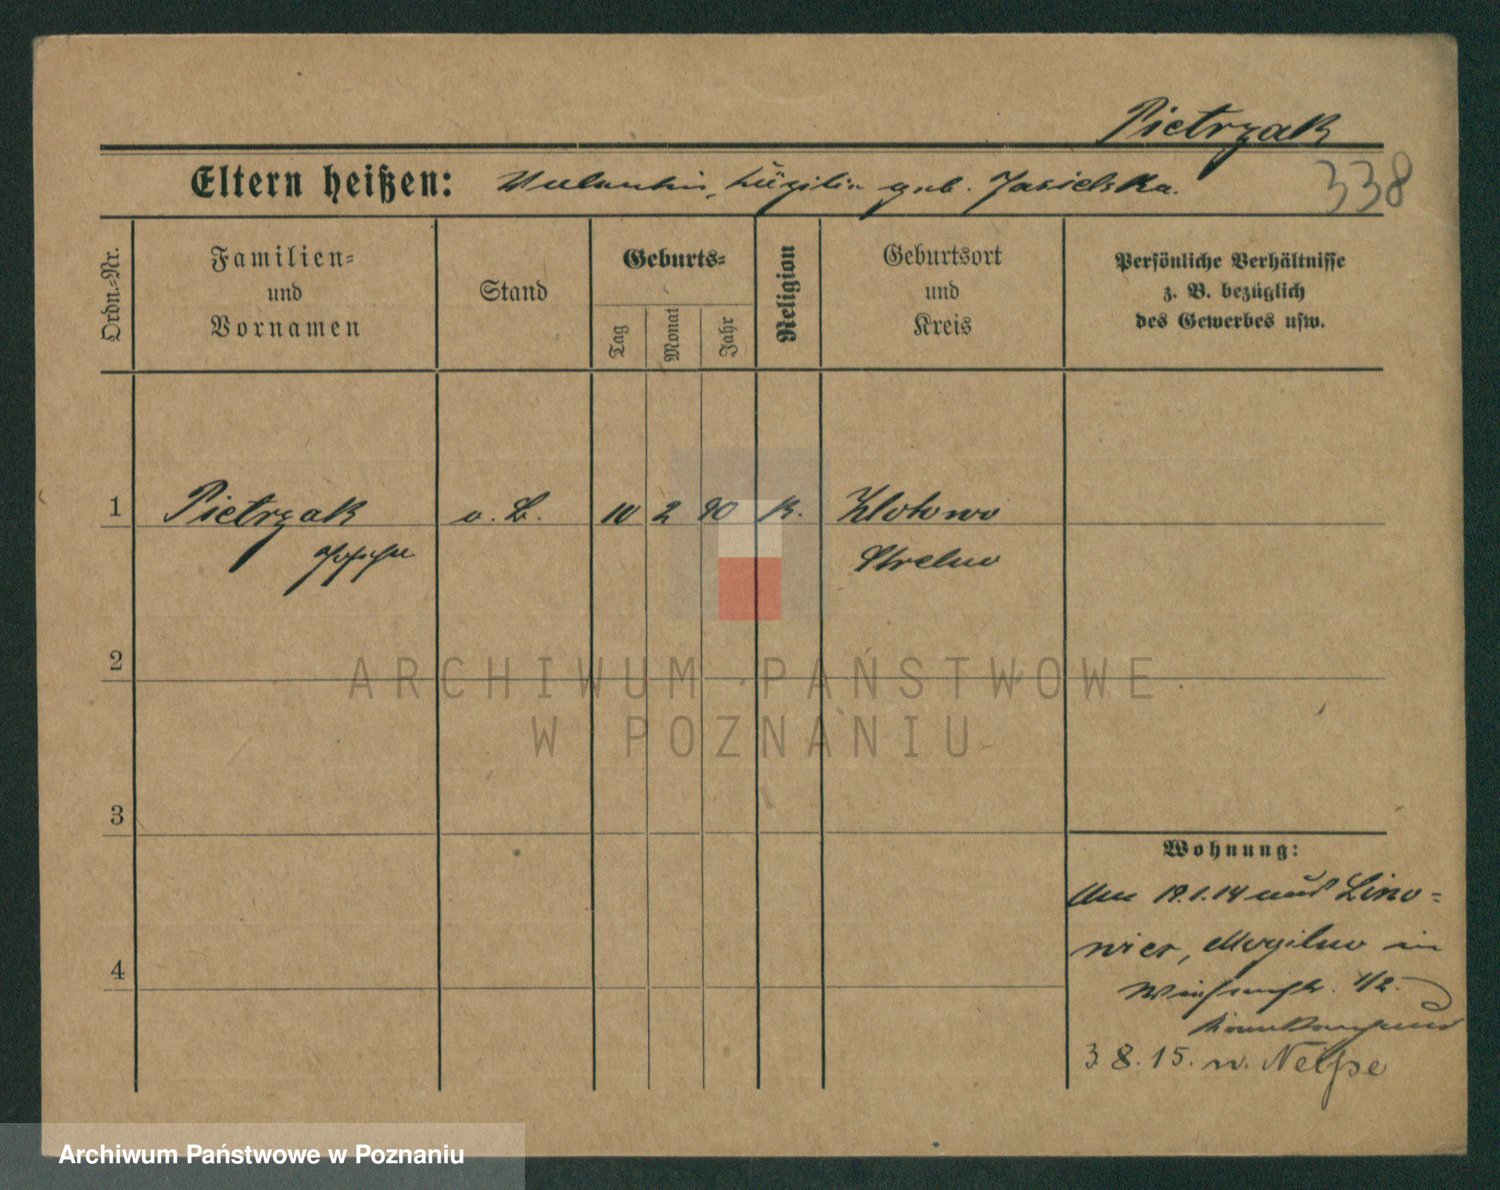 Pietrzak
338
Eltern heißen: geb. Jasielska.
Ordn.-Nr.
Familien-
und
Vornamen
Stand
Geburts-
Tag
Monat
Jahr
Religion
Geburtsort
und
Kreis
Persönliche Verhältnisse
z. B. bezüglich
des Gewerbes usw.
1 Pietrzak o. B. 10 2 90 K. Zlotowo
Strelno
2
ARCHIWUM PAŃSTWOWE
W POZNANIU
3
Wohnung:
19.1.14 Lino-
wiec, Mogilno in
4
1/2.
Krankenhaus
3.8.15. n. Neisse
Archiwum Państwowe w Poznaniu